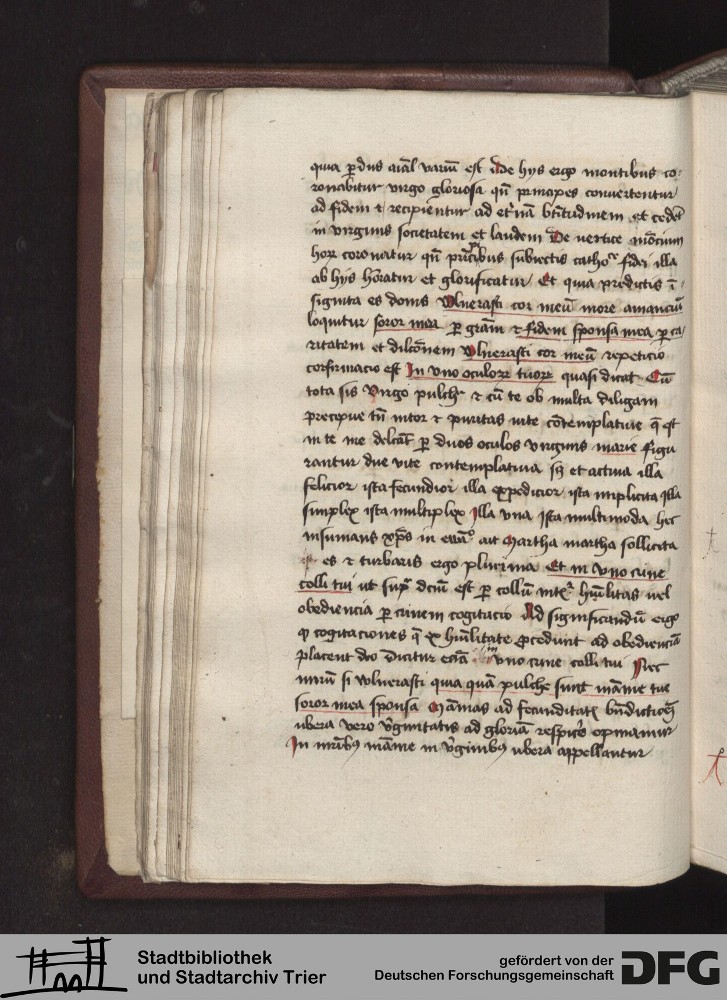 quia pardus aīal variū est De hys ergo montibus co-
ronabitur virgo gloriosa qn̄ principes convertentur
ad fidem et recipientur ad et'nā btītudinem et cedet
in virginis societatem et laudem De vertice mōcium
hor̄ coronatur qn̄ principibus subiectis catho' fidei illa
ab hys honoratur et glorificatur Et quia predictis ī-
signita es donis Wlnerasti cor meū more amanciū
loquitur soror mea p grām et fidem sponsa mea p ca-
ritatem et dilcōnem Wlnerasti cor meū repeticio
confirmacio est In vno oculor̄ tuor̄ quasi dicat Cū
tota sis Virgo pulchr' et cū te ob multa diligam
precipue tn̄ nitor et puritas vite cōtemplative q̄ est
in te me delcāt p duos oculos virginis marie figu
rantur due vite contemplativa sz et activa illa
felicior ista fecundior illa expedicior ista implicita illa
simplex ista multiplex Illa vna Ista multimoda hec
insinuans xp̄s in ewā° ait Martha martha sollicita
es et turbaris ergo plurima Et in vno crine
colli tui ut supª dcm̄ est p collū int' hūilitas vel
obediencia p crinem cogitacio Ad significandū ergo
q cogitaciones q̄ ex hūilitate procedunt ad obedienciā
placent deo Dicitur eciā in vno crine colli tui Nec
mirū si wlnerasti quia quā pulchre sunt māme tue
soror mea sponsa Māmas ad fecunditatē bn̄dictiōis
ubera vero v'ginitatis ad gloriā respic'e opinamur
In mr̄ibus māme in v'ginibus ubera appellantur
Stadtbibliothek
und Stadtarchiv Trier
gefördert von der
Deutschen Forschungsgemeinschaft
DFG